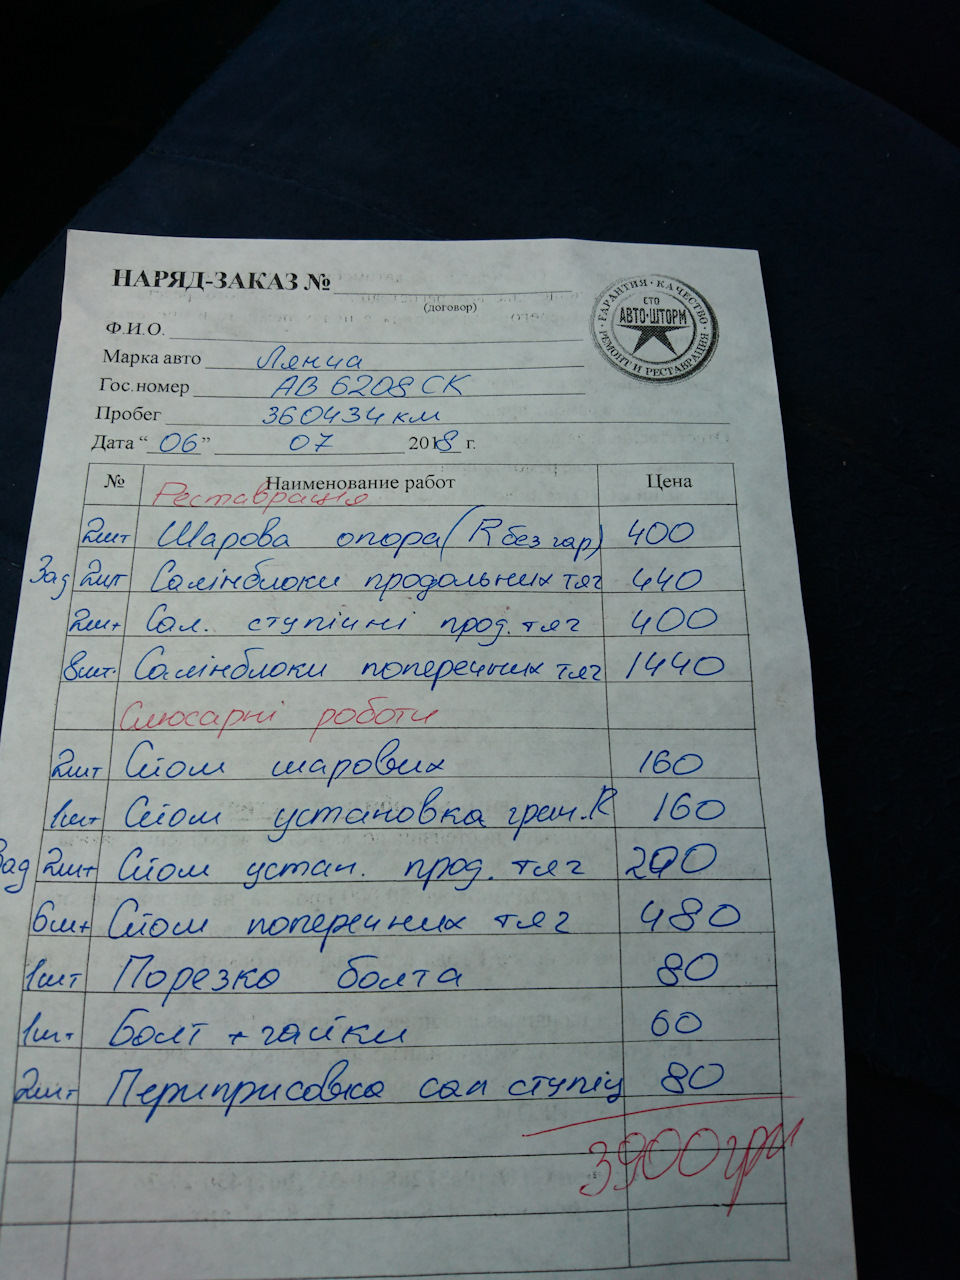 НАРЯД-ЗАКАЗ №
(договор)
ГАРАНТИЯ · КАЧЕСТВО · РЕМОНТ И РЕСТАВРАЦИЯ ·
СТО
АВТО-ШТОРМ
Ф.И.О.
Марка авто Лянча
Гос.номер АВ 6208 СК
Пробег 360434 км
Дата “ 06 ” 07 2018 г.
№ Наименование работ Цена
Реставрація
2шт Шарова опора (R без гар) 400
Зад 2шт Салінблоки продольних тяг 440
2шт Сал. ступічні прод. тяг 400
8шт. Салінблоки поперечних тяг 1440
Слюсарні роботи
2шт С\юм шарових 160
1шт С\юм установка гран. R 160
Зад 2шт С\юм устан. прод. тяг 200
6шт С\юм поперечних тяг 480
1шт Порезка болта 80
1шт Болт + гайки 60
2шт Периприсовка сал ступіц 80
3900грн